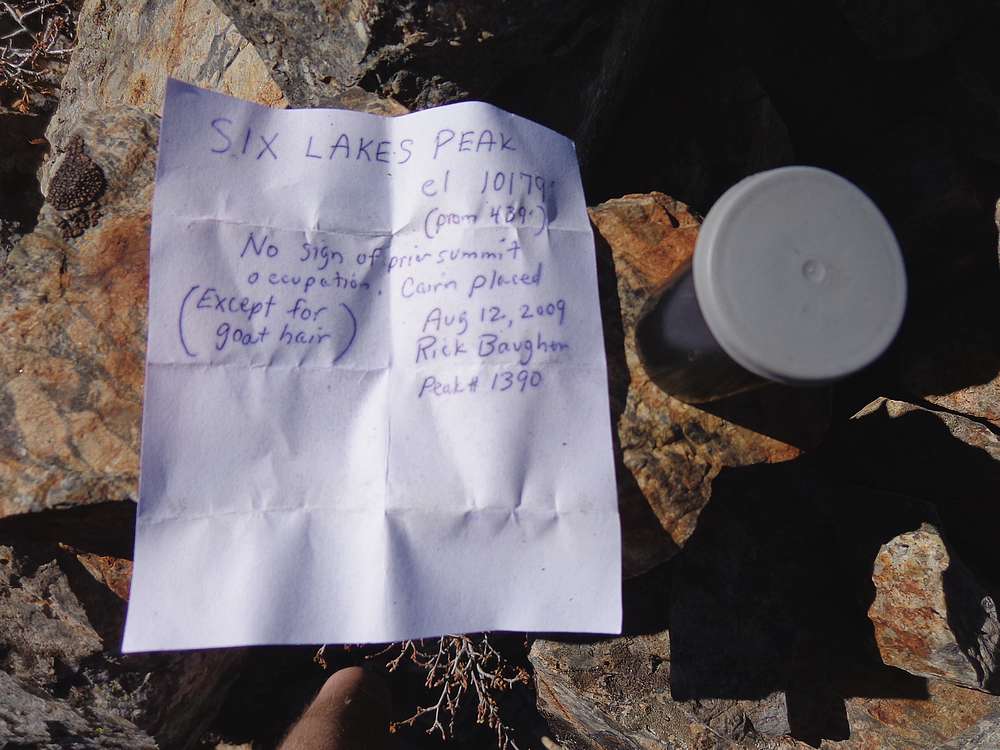 SIX LAKES PEAK
el 10179'
(prom 439')
No sign of prior summit
occupation. Cairn placed
(Except for
goat hair)
Aug 12, 2009
Rick Baugher
Peak# 1390